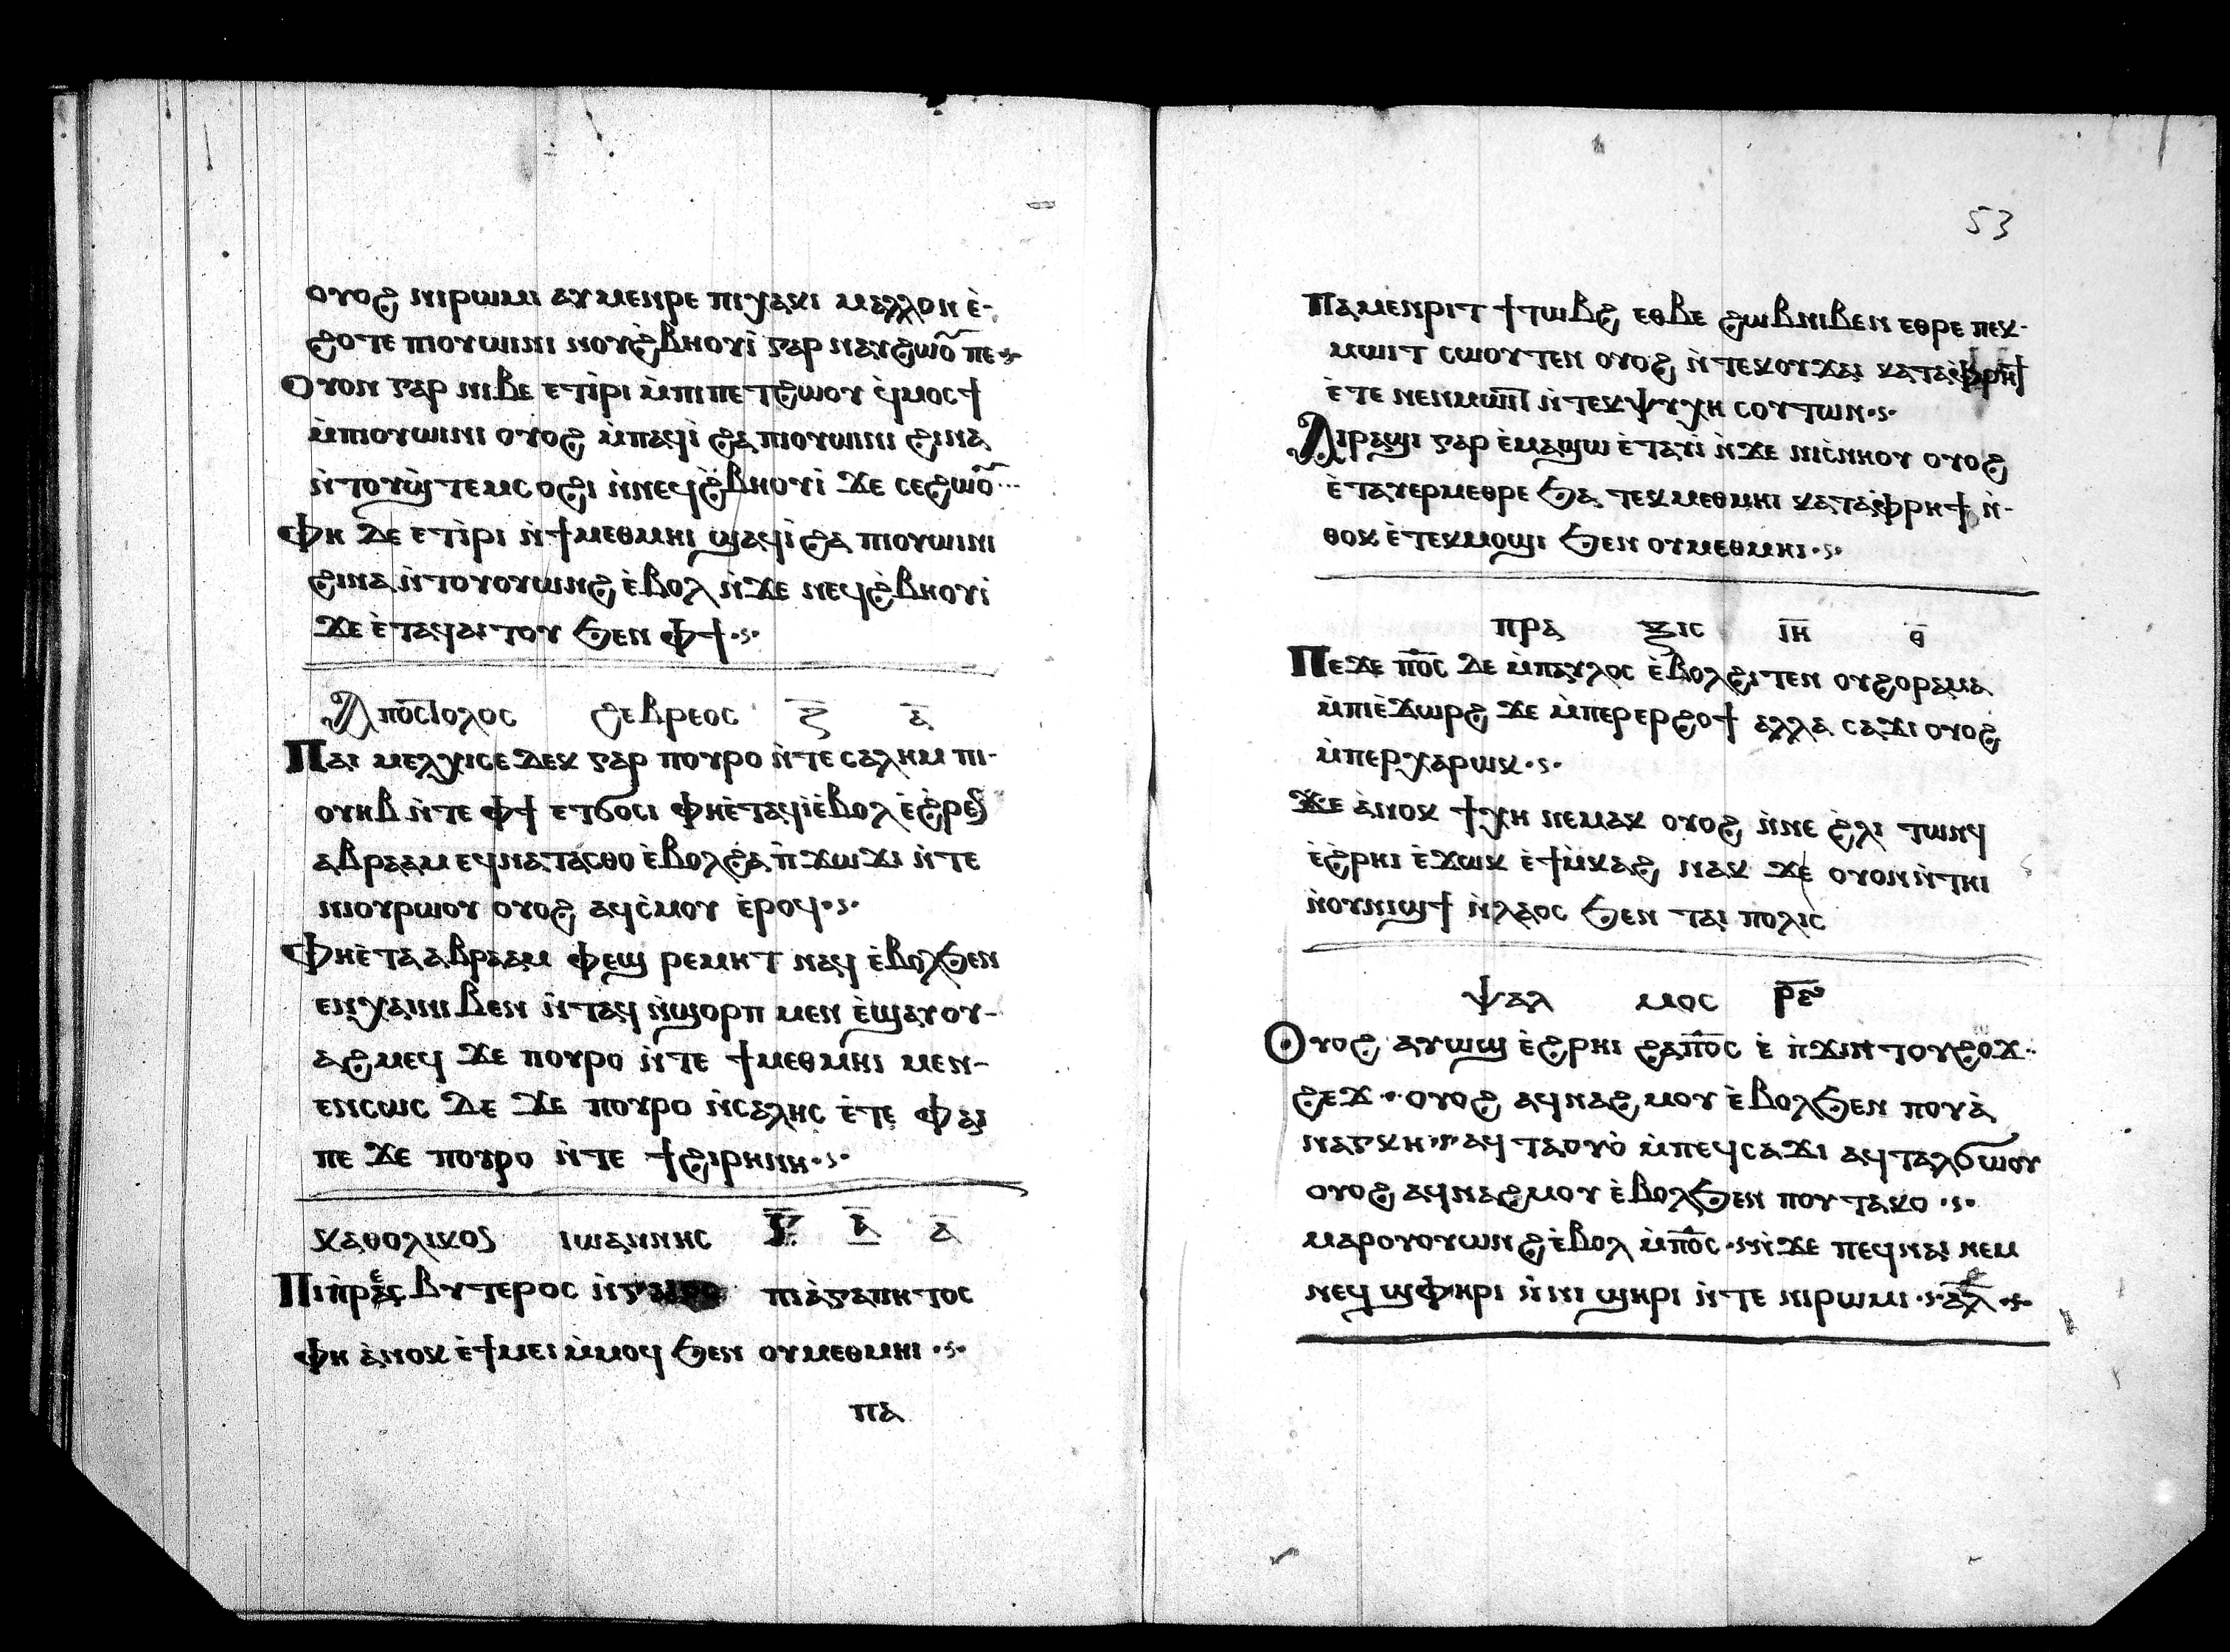 ⲟⲩⲟϩ ⲛⲓⲣⲱⲙⲓ ⲁⲩⲙⲉⲛⲣⲉ ⲡⲓⲭⲁⲕⲓ ⲙⲁⲗⲗⲟⲛ ⲉ̀-
ϩⲟⲧⲉ ⲡⲓⲟⲩⲱⲓⲛⲓ ⲛⲟⲩϩ̀ⲃⲏⲟⲩⲓ̀ ⲅⲁⲣ ⲛⲁⲩϩⲱⲟ̅ ⲡⲉ
Ⲟⲩⲟⲛ ⲅⲁⲣ ⲛⲓⲃⲉ ⲉⲧⲓ̀ⲣⲓ ⲙ̀ⲡⲓⲡⲉⲧϩⲱⲟⲩ ϥ̀ⲙⲟⲥϯ
ⲙ̀ⲡⲓⲟⲩⲱⲓⲛⲓ ⲟⲩⲟϩ ⲙ̀ⲡⲁϥⲓ̀ ϩⲁ ⲡⲓⲟⲩⲱⲓⲛⲓ ϩⲓⲛⲁ
ⲛ̀ⲧⲟⲩϣ̀ⲧⲉⲙⲥⲟϩⲓ ⲛ̀ⲛⲉϥϩ̀ⲃⲏⲟⲩⲓ̀ ϫⲉ ⲥⲉϩⲱⲟ̅
Ⲫⲏ ⲇⲉ ⲉⲧⲓ̀ⲣⲓ ⲛ̀ϯⲙⲉⲑⲙⲏⲓ ϣⲁϥⲓ̀ ϩⲁ ⲡⲓⲟⲩⲱⲓⲛⲓ
ϩⲓⲛⲁ ⲛ̀ⲧⲟⲩⲟⲩⲱⲛϩ ⲉ̀ⲃⲟⲗ ⲛ̀ϫⲉ ⲛⲉϥϩ̀ⲃⲏⲟⲩⲓ̀
ϫⲉ ⲉ̀ⲧⲁϥⲁⲓⲧⲟⲩ ϧⲉⲛ ⲫϯ
Ⲁⲡⲟⲥⲧⲟⲗⲟⲥ ϩⲉⲃⲣⲉⲟⲥ ⲝ̅ ⲁ̅
Ⲡⲁⲓ ⲙⲉⲗⲭⲓⲥⲉⲇⲉⲕ ⲅⲁⲣ ⲡⲟⲩⲣⲟ ⲛ̀ⲧⲉ ⲥⲁⲗⲏⲙ ⲡⲓ-
ⲟⲩⲏⲃ ⲛ̀ⲧⲉ ⲫϯ ⲉⲧϭⲟⲥⲓ ⲫⲏⲉ̀ⲧⲁϥⲓ̀ⲉ̀ⲃⲟⲗ ⲉ̀ϩ̀ⲣⲉⲛ
ⲁⲃⲣⲁⲁⲙ ⲉϥⲛⲁⲧⲁⲥⲑⲟ ⲉ̀ⲃⲟⲗϩⲁ ⲡ̀ϫⲱϫⲓ ⲛ̀ⲧⲉ
ⲛⲓⲟⲩⲣⲱⲟⲩ ⲟⲩⲟϩ ⲁϥⲥ̀ⲙⲟⲩ ⲉ̀ⲣⲟϥ
Ⲫⲏⲉ̀ⲧⲁ ⲁⲃⲣⲁⲁⲙ ⲫⲉϣ ⲣⲉⲙⲏⲧ ⲛⲁϥ ⲉ̀ⲃⲟⲗϧⲉⲛ
ⲉⲛⲭⲁⲓⲛⲓⲃⲉⲛ ⲛ̀ⲧⲁϥ ⲛ̀ϣⲟⲣⲡ ⲙⲉⲛ ⲉ̀ϣⲁⲩⲟⲩ-
ⲁϩⲙⲉϥ ϫⲉ ⲡⲟⲩⲣⲟ ⲛ̀ⲧⲉ ϯⲙⲉⲑⲙⲏⲓ ⲙⲉⲛ-
ⲉⲛⲥⲱⲥ ⲇⲉ ϫⲉ ⲡⲟⲩⲣⲟ ⲛ̀ⲥⲁⲗⲏⲥ ⲉ̀ⲧⲉ ⲫⲁⲓ
ⲡⲉ ϫⲉ ⲡⲟⲩⲣⲟ ⲛ̀ⲧⲉ ϯϩⲓⲣⲏⲛⲏ
ⲕⲁⲑⲟⲗⲓⲕⲟⲥ ⲓⲱⲁⲛⲛⲏⲥ ⲅ̅ ⲁ̅ ⲁ̅
Ⲡⲓⲡ̀ⲣⲉⲥⲃⲩⲧⲉⲣⲟⲥ ⲡⲓⲁ̀ⲅⲁⲡⲏⲧⲟⲥ
ⲫⲏ ⲁ̀ⲛⲟⲕ ⲉ̀ϯⲙⲉⲓ ⲙ̀ⲙⲟϥ ϧⲉⲛ ⲟⲩⲙⲉⲑⲙⲏⲓ
ⲡⲁ
53
Ⲡⲁⲙⲉⲛⲣⲓⲧ ϯⲧⲱⲃϩ ⲉⲑⲃⲉ ϩⲱⲃⲛⲓⲃⲉⲛ ⲉⲑⲣⲉ ⲡⲉⲕ-
ⲙⲱⲓⲧ ⲥⲱⲟⲩⲧⲉⲛ ⲟⲩⲟϩ ⲛ̀ⲧⲉⲕⲟⲩϫⲁⲓ ⲕⲁⲧⲁⲫⲣⲏϯ
ⲉ̀ⲧⲉ ⲛⲉⲛⲙⲱⲓⲧ ⲛ̀ⲧⲉⲕⲯⲩⲭⲏ ⲥⲟⲩⲧⲱⲛ
Ⲁⲓⲣⲁϣⲓ ⲅⲁⲣ ⲉ̀ⲙⲁϣⲱ ⲉ̀ⲧⲁⲩⲓ̀ ⲛ̀ϫⲉ ⲛⲓⲥ̀ⲛⲏⲟⲩ ⲟⲩⲟϩ
ⲉ̀ⲧⲁⲩⲉⲣⲙⲉⲑⲣⲉ ϧⲁ ⲧⲉⲕⲙⲉⲑⲙⲏⲓ ⲕⲁⲧⲁⲫⲣⲏϯ ⲛ̀-
ⲑⲟⲕ ⲉ̀ⲧⲉⲕⲙⲟϣⲓ ϧⲉⲛ ⲟⲩⲙⲉⲑⲙⲏⲓ
ⲡⲣⲁ ⲝⲓⲥ ⲓ̅ⲏ̅ ⲑ̅
Ⲡⲉϫⲉ ⲡ̅ⲟ̅ⲥ̅ ⲇⲉ ⲙ̀ⲡⲁⲩⲗⲟⲥ ⲉ̀ⲃⲟⲗϩⲓⲧⲉⲛ ⲟⲩϩⲟⲣⲁⲙⲁ
ⲙ̀ⲡⲓⲉ̀ϫⲱⲣϩ ϫⲉ ⲙ̀ⲡⲉⲣⲉⲣϩⲟϯ ⲁⲗⲗⲁ ⲥⲁϫⲓ ⲟⲩⲟϩ
ⲙ̀ⲡⲉⲣⲭⲁⲣⲱⲕ
Ϫⲉ ⲁ̀ⲛⲟⲕ ϯⲭⲏ ⲛⲉⲙⲁⲕ ⲟⲩⲟϩ ⲛ̀ⲛⲉ ϩⲗⲓ ⲧⲱⲛϥ
ⲉ̀ϩ̀ⲣⲏⲓ ⲉ̀ϫⲱⲕ ⲉ̀ϯⲙ̀ⲕⲁϩ ⲛⲁⲕ ϫⲉ ⲟⲩⲟⲛⲛ̀ⲧⲏⲓ
ⲛ̀ⲟⲩⲛⲓϣϯ ⲛ̀ⲗⲁⲟⲥ ϧⲉⲛ ⲧⲁⲓ ⲡⲟⲗⲓⲥ
ⲯⲁⲗ ⲙⲟⲥ ⲣ̅ⲋ̅
Ⲟⲩⲟϩ ⲁⲩⲱϣ ⲉ̀ϩ̀ⲣⲏⲓ ϩⲁⲡ̅ⲟ̅ⲥ̅ ⲉ̀ ⲡ̀ϫⲓⲛⲧⲟⲩϩⲟϫ
ϩⲉϫ ⲟⲩⲟϩ ⲁϥⲛⲁϩⲙⲟⲩ ⲉ̀ⲃⲟⲗϧⲉⲛ ⲡⲟⲩⲁ̀
ⲛⲁⲅⲕⲏ ⲁϥⲧⲁⲟⲩⲟ̀ ⲙ̀ⲡⲉϥⲥⲁϫⲓ ⲁϥⲧⲁⲗϭⲱⲟⲩ
ⲟⲩⲟϩ ⲁϥⲛⲁϩⲙⲟⲩ ⲉ̀ⲃⲟⲗϧⲉⲛ ⲡⲟⲩⲧⲁⲕⲟ
ⲙⲁⲣⲟⲩⲟⲩⲱⲛϩ ⲉ̀ⲃⲟⲗ ⲙ̀ⲡ̅ⲟ̅ⲥ̅ ⲛ̀ϫⲉ ⲡⲉϥⲛⲁⲓ ⲛⲉⲙ
ⲛⲉϥϣⲫⲏⲣⲓ ⲛ̀ⲛⲓ ϣⲏⲣⲓ ⲛ̀ⲧⲉ ⲛⲓⲣⲱⲙⲓ ⲁ̅ⲗ̅